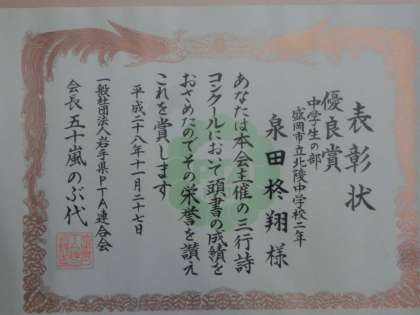 表彰状
優良賞
中学生の部
盛岡市立北陵中学校二年
泉田柊翔様
あなたは本会主催の三行詩
コンクールにおいて頭書の成績を
おさめたのでその栄誉を讃え
これを賞します
平成二十八年十一月二十七日
一般社団法人岩手県PTA連合会
会長五十嵐のぶ代